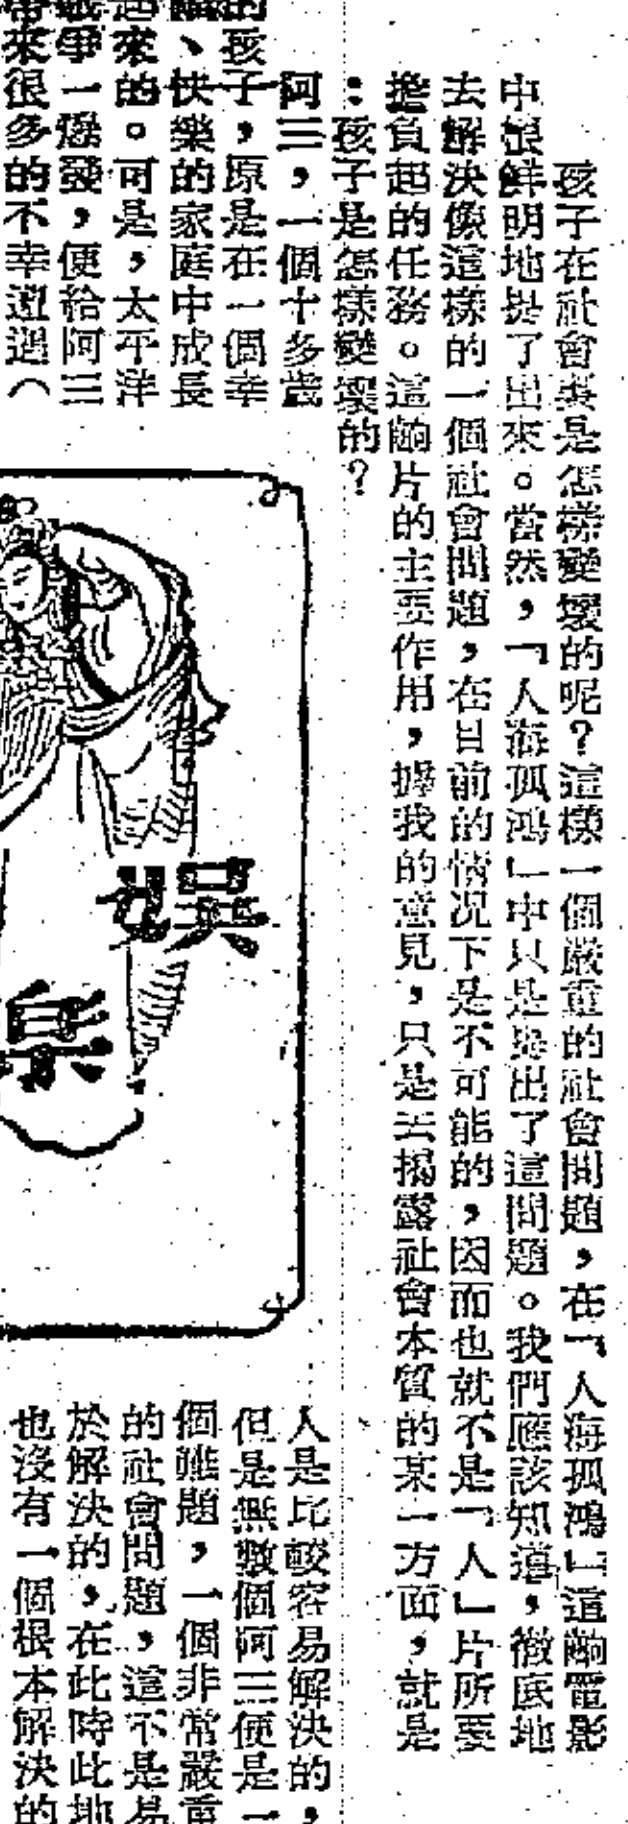 孩子在社會裏是怎樣變壞的呢？這樣一個嚴重的社會問題，在「人海孤鴻」這齣電影
中很鮮明地提了出來。當然，「人海孤鴻」中只是提出了這問題。我們應該知道，徹底地
去解決像這樣的一個社會問題，在目前的情况下是不可能的，因而也就不是「人」片所要
擔負起的任務。這齣片的主要作用，據我的意見，只是去揭露社會本質的某一方面，就是
：孩子是怎樣變壞的？
阿三，一個十多歲
的孩子，原是在一個幸
、快樂的家庭中成長
起來的。可是，太平洋
戰爭一爆發，便給阿三
帶來很多的不幸遭遇（
娛
樂
人是比較容易解決的，
但是無數個阿三便是一
個難題，一個非常嚴重
的社會問題，這不是易
於解決的，在此時此地
也沒有一個根本解決的